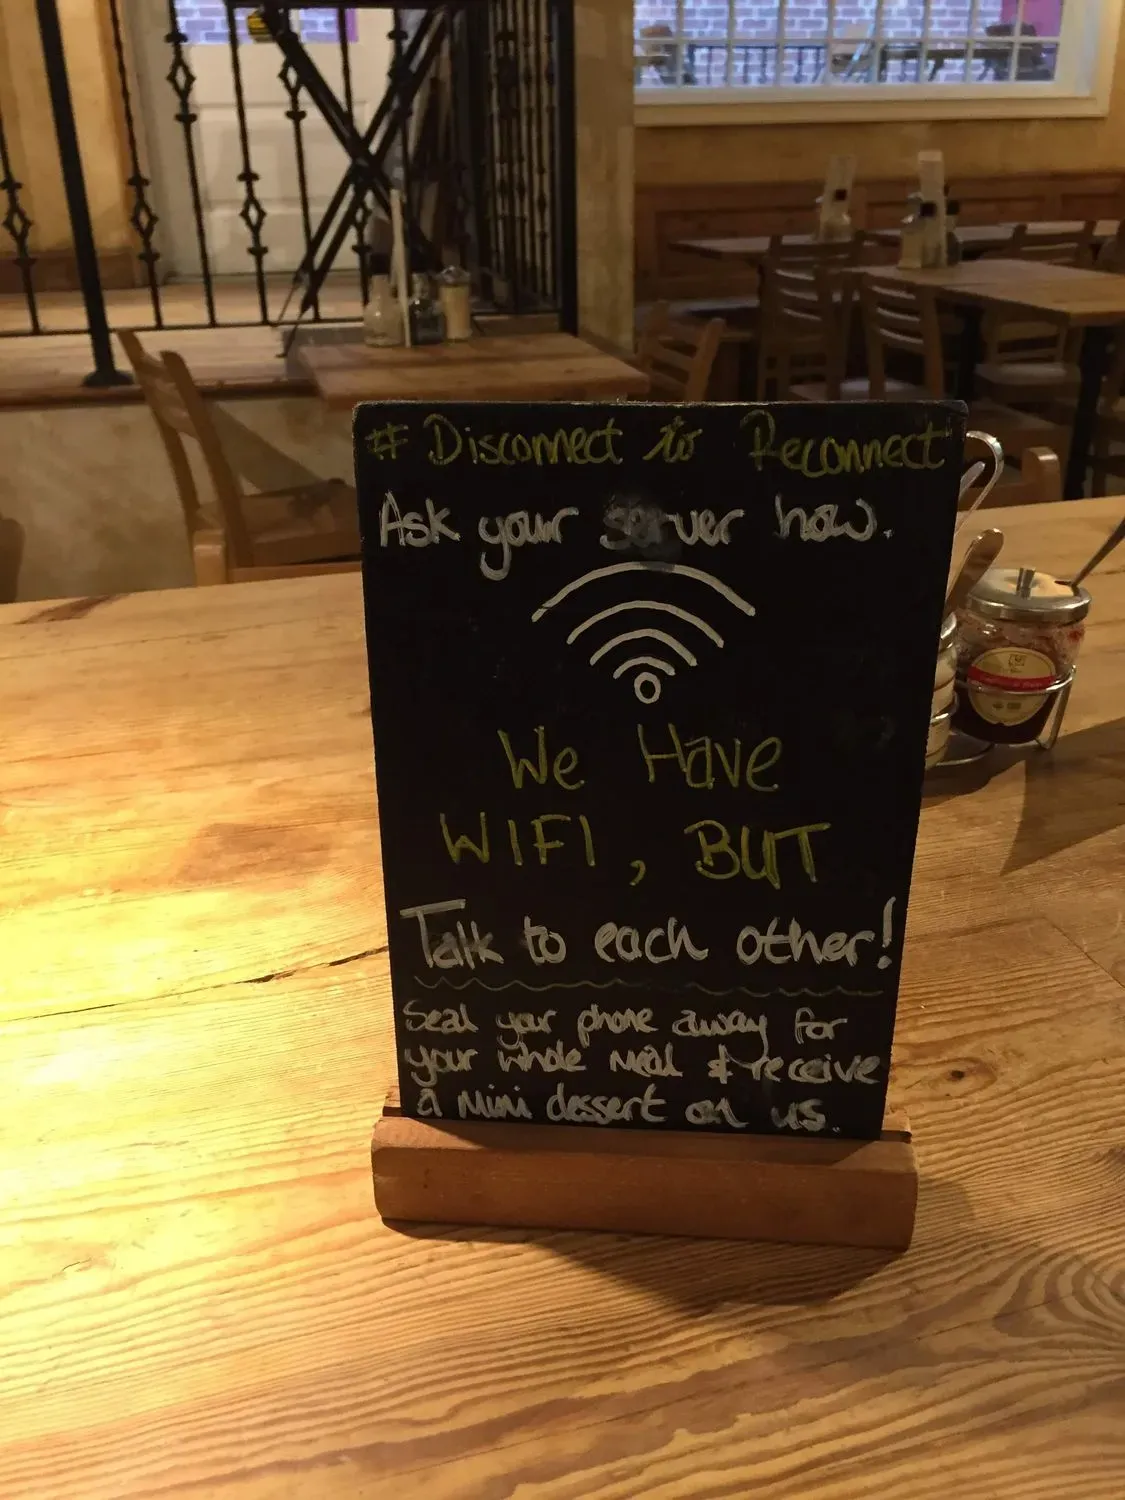 # Disconnect to Reconnect
Ask your server how.
We Have
WIFI, BUT
Talk to each other!
Seal your phone away for
your whole meal & receive
a mini dessert on us.